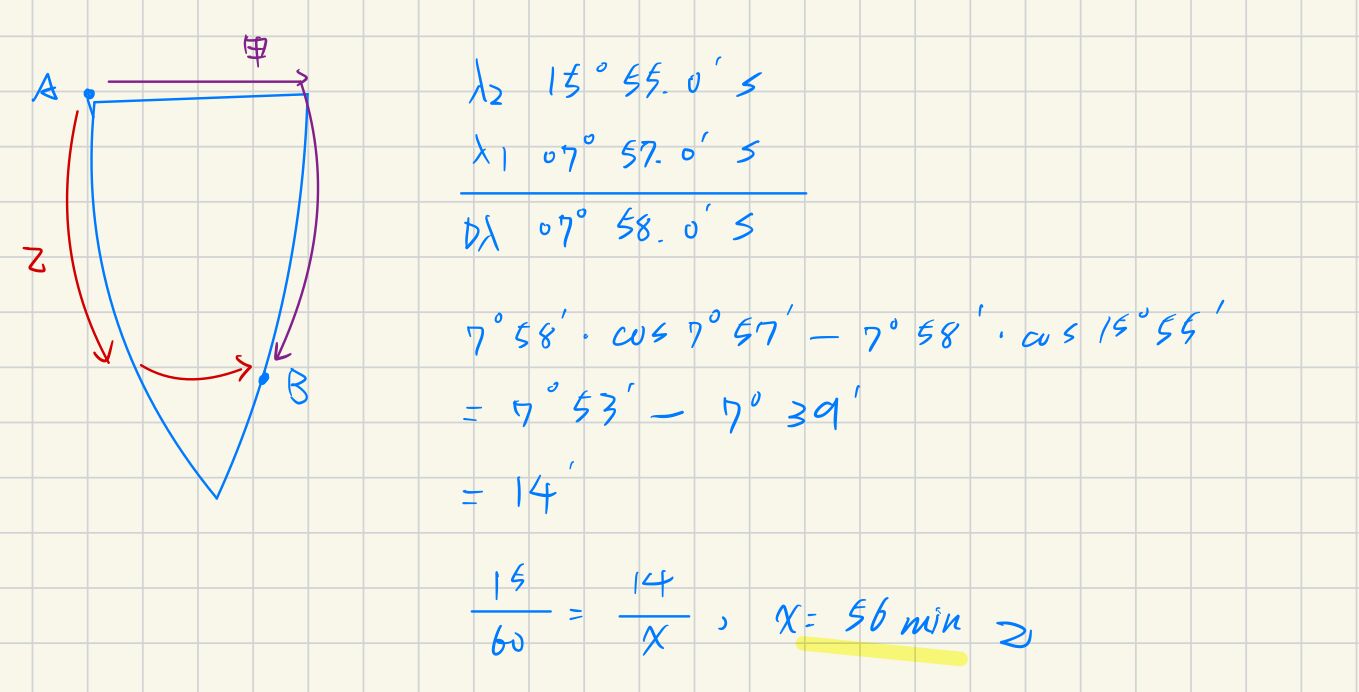 甲
A
乙
B
λ2 15° 55.0' S
λ1 07° 57.0' S
Dλ 07° 58.0' S
7° 58' · cos 7° 57' — 7° 58' · cos 15° 55'
= 7° 53' — 7° 39'
= 14'
15/60 = 14/x , x = 56 min 乙